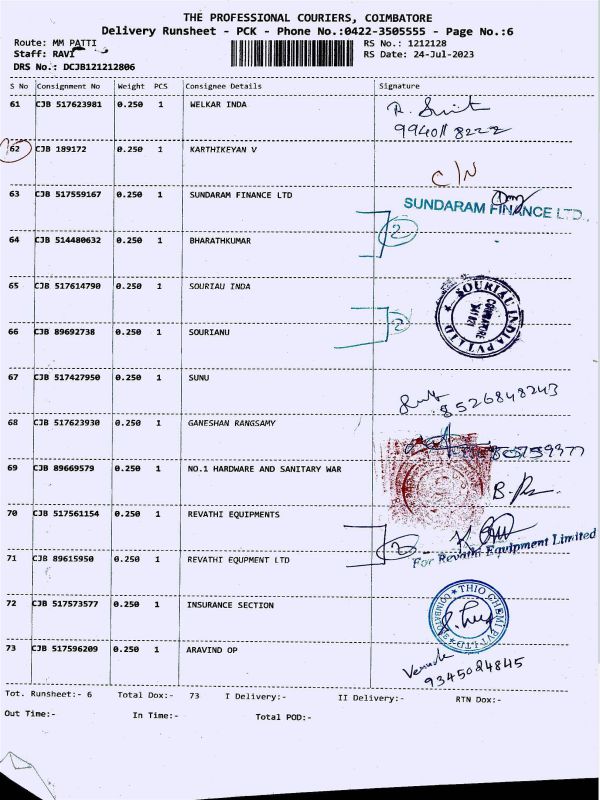 THE PROFESSIONAL COURIERS, COIMBATORE
Delivery Runsheet - PCK - Phone No.:0422-3505555 - Page No.:6
Route: MM PATTI RS No.: 1212128
Staff: RAVI RS Date: 24-Jul-2023
DRS No.: DCJB121212806
S No Consignment No Weight PCS Consignee Details Signature
61 CJB 517623981 0.250 1 WELKAR INDA
62 CJB 189172 0.250 1 KARTHIKEYAN V
C/N
63 CJB 517559167 0.250 1 SUNDARAM FINANCE LTD
SUNDARAM FINANCE LTD.
2
64 CJB 514480632 0.250 1 BHARATHKUMAR
65 CJB 517614790 0.250 1 SOURIAU INDA
SOURIAU INDIA PVT LTD
2
66 CJB 89692738 0.250 1 SOURIANU
67 CJB 517427950 0.250 1 SUNU
8526848243
68 CJB 517623930 0.250 1 GANESHAN RANGSAMY
69 CJB 89669579 0.250 1 NO.1 HARDWARE AND SANITARY WAR
70 CJB 517561154 0.250 1 REVATHI EQUIPMENTS
2
For Revathi Equipment Limited
71 CJB 89615950 0.250 1 REVATHI EQUPMENT LTD
72 CJB 517573577 0.250 1 INSURANCE SECTION
THIO CHEMI PVT LTD
COIMBATORE
73 CJB 517596209 0.250 1 ARAVIND OP
9345024845
Tot. Runsheet:- 6 Total Dox:- 73 I Delivery:- II Delivery:- RTN Dox:-
Out Time:- In Time:- Total POD:-